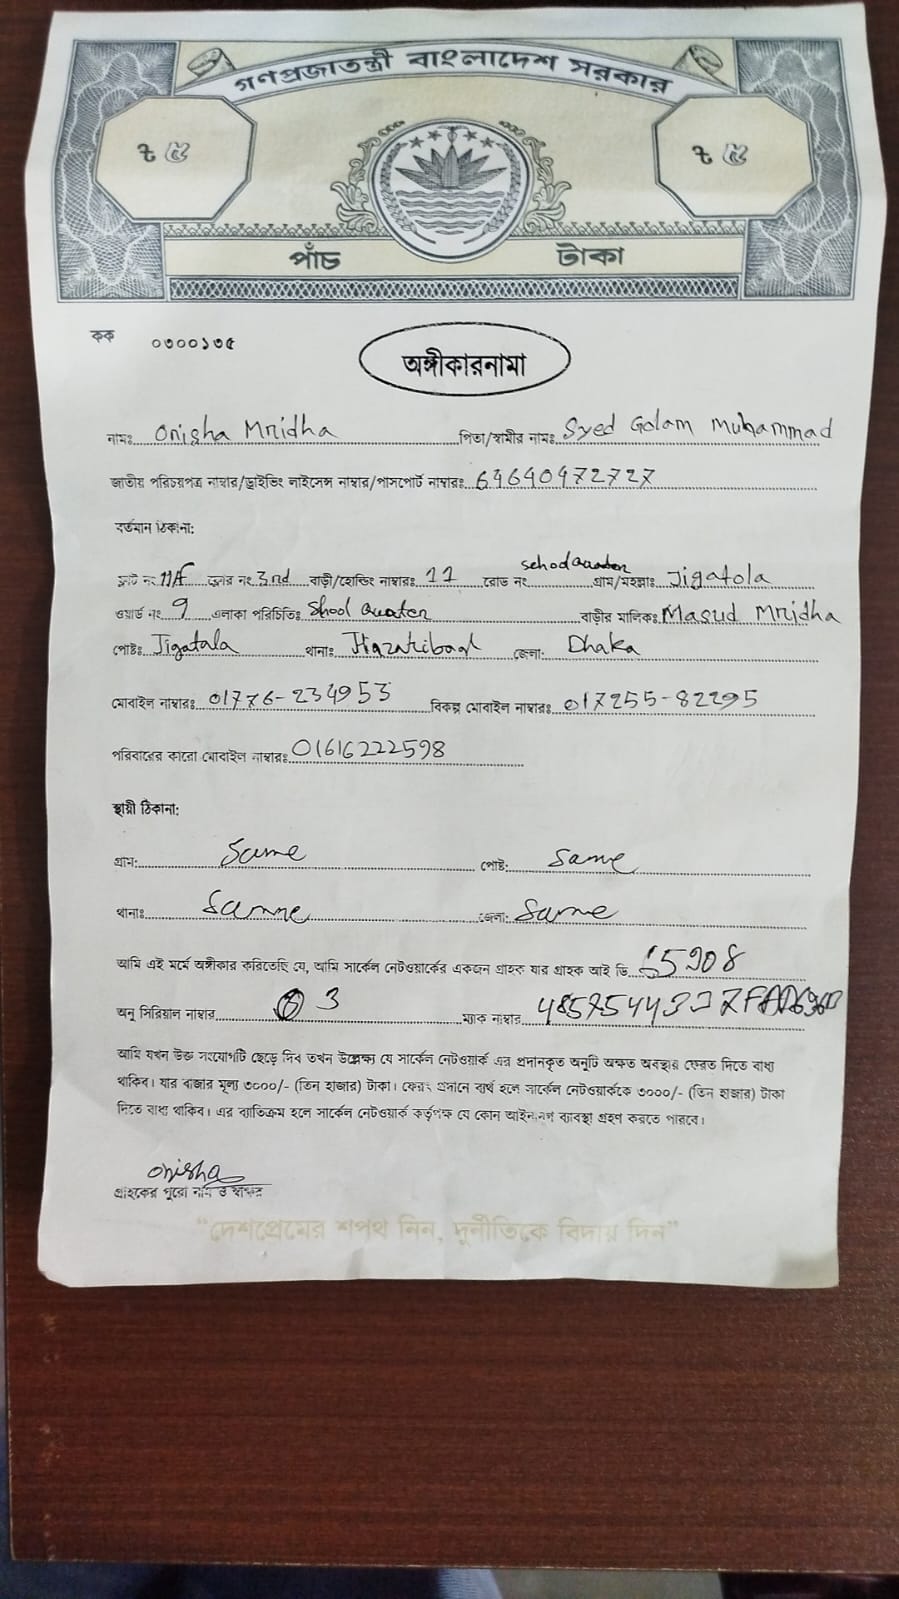 গণপ্রজাতন্ত্রী বাংলাদেশ সরকার
৳ ৫ ৳ ৫
পাঁচ টাকা
কক ০৩০০১৩৫
অঙ্গীকারনামা
নামঃ Onisha Mridha পিতা/স্বামীর নামঃ Syed Golam Muhammad
জাতীয় পরিচয়পত্র নাম্বার/ড্রাইভিং লাইসেন্স নাম্বার/পাসপোর্ট নাম্বারঃ 64640472727
বর্তমান ঠিকানা:
ফ্লাট নং 11F ফ্লোর নং 3nd বাড়ী/হোল্ডিং নাম্বারঃ 11 রোড নং গ্রাম/মহল্লাঃ Jigatola
ওয়ার্ড নং 9 এলাকা পরিচিতিঃ Shool Quater বাড়ীর মালিকঃ Masud Mridha
পোষ্টঃ Jigatala থানাঃ জেলা: Dhaka
মোবাইল নাম্বারঃ 01776-234953 বিকল্প মোবাইল নাম্বারঃ 017255-82295
পরিবারের কারো মোবাইল নাম্বারঃ 01616222598
স্থায়ী ঠিকানা:
গ্রাম: Same পোষ্ট: Same
থানাঃ Same জেলা: Same
আমি এই মর্মে অঙ্গীকার করিতেছি যে, আমি সার্কেল নেটওয়ার্কের একজন গ্রাহক যার গ্রাহক আই ডি
অনু সিরিয়াল নাম্বার 3 ম্যাক নাম্বার
আমি যখন উক্ত সংযোগটি ছেড়ে দিব তখন উল্লেক্ষ্য যে সার্কেল নেটওয়ার্ক এর প্রদানকৃত অনুটি অক্ষত অবস্থায় ফেরত দিতে বাধ্য
থাকিব। যার বাজার মূল্য ৩০০০/- (তিন হাজার) টাকা। ফেরৎ প্রদানে ব্যর্থ হলে সার্কেল নেটওয়ার্ককে ৩০০০/- (তিন হাজার) টাকা
দিতে বাধ্য থাকিব। এর ব্যতিক্রম হলে সার্কেল নেটওয়ার্ক কর্তৃপক্ষ যে কোন আইনানুগ ব্যবস্থা গ্রহণ করতে পারবে।
onisha
গ্রাহকের পুরো নাম ও স্বাক্ষর
"দেশপ্রেমের শপথ নিন, দুর্নীতিকে বিদায় দিন"